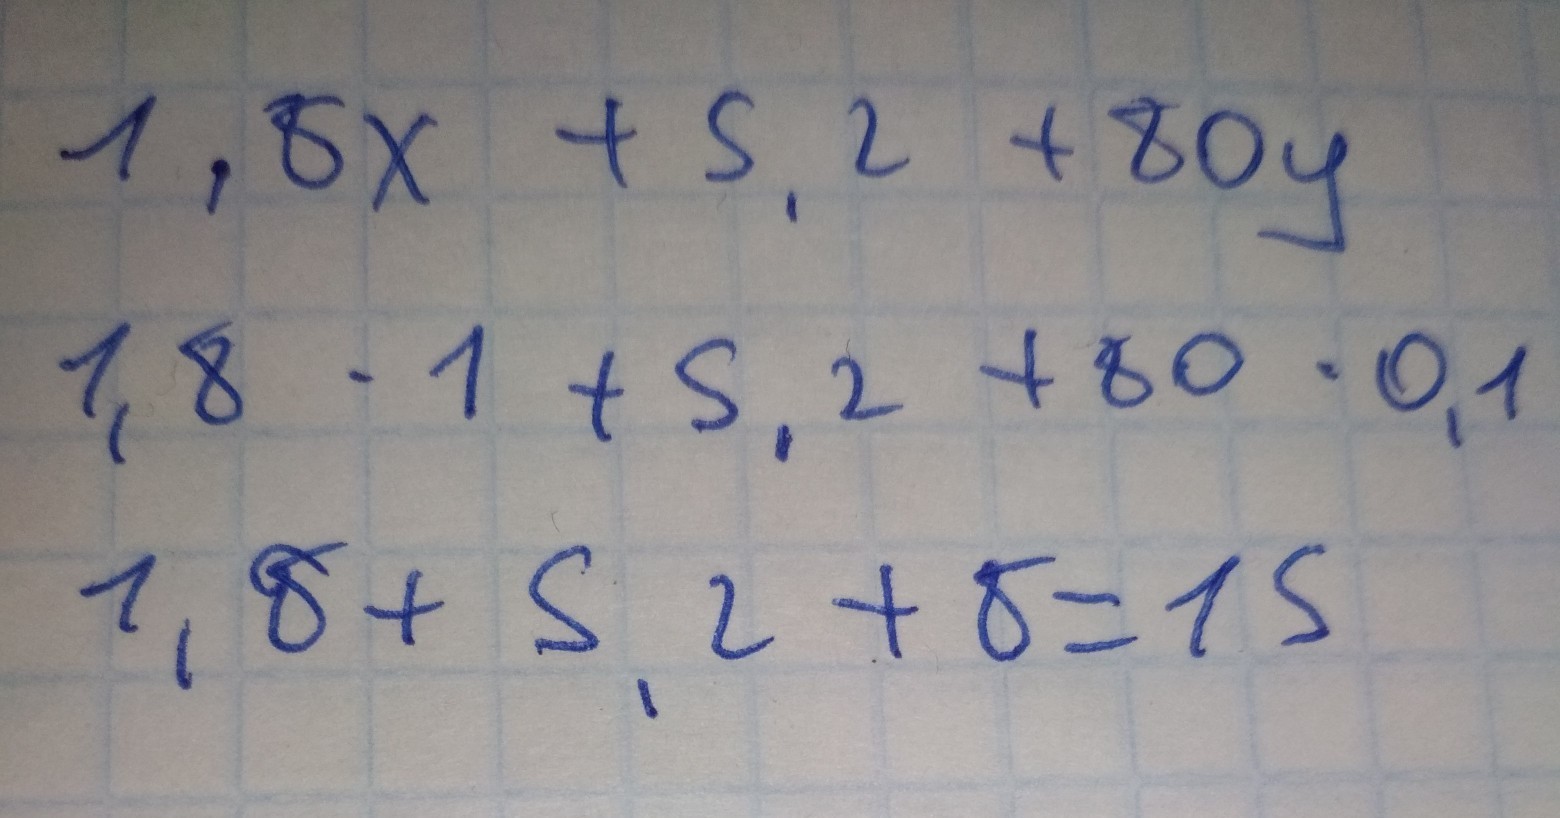 1,8x + 5,2 + 80y
1,8 · 1 + 5,2 + 80 · 0,1
1,8 + 5,2 + 8 = 15